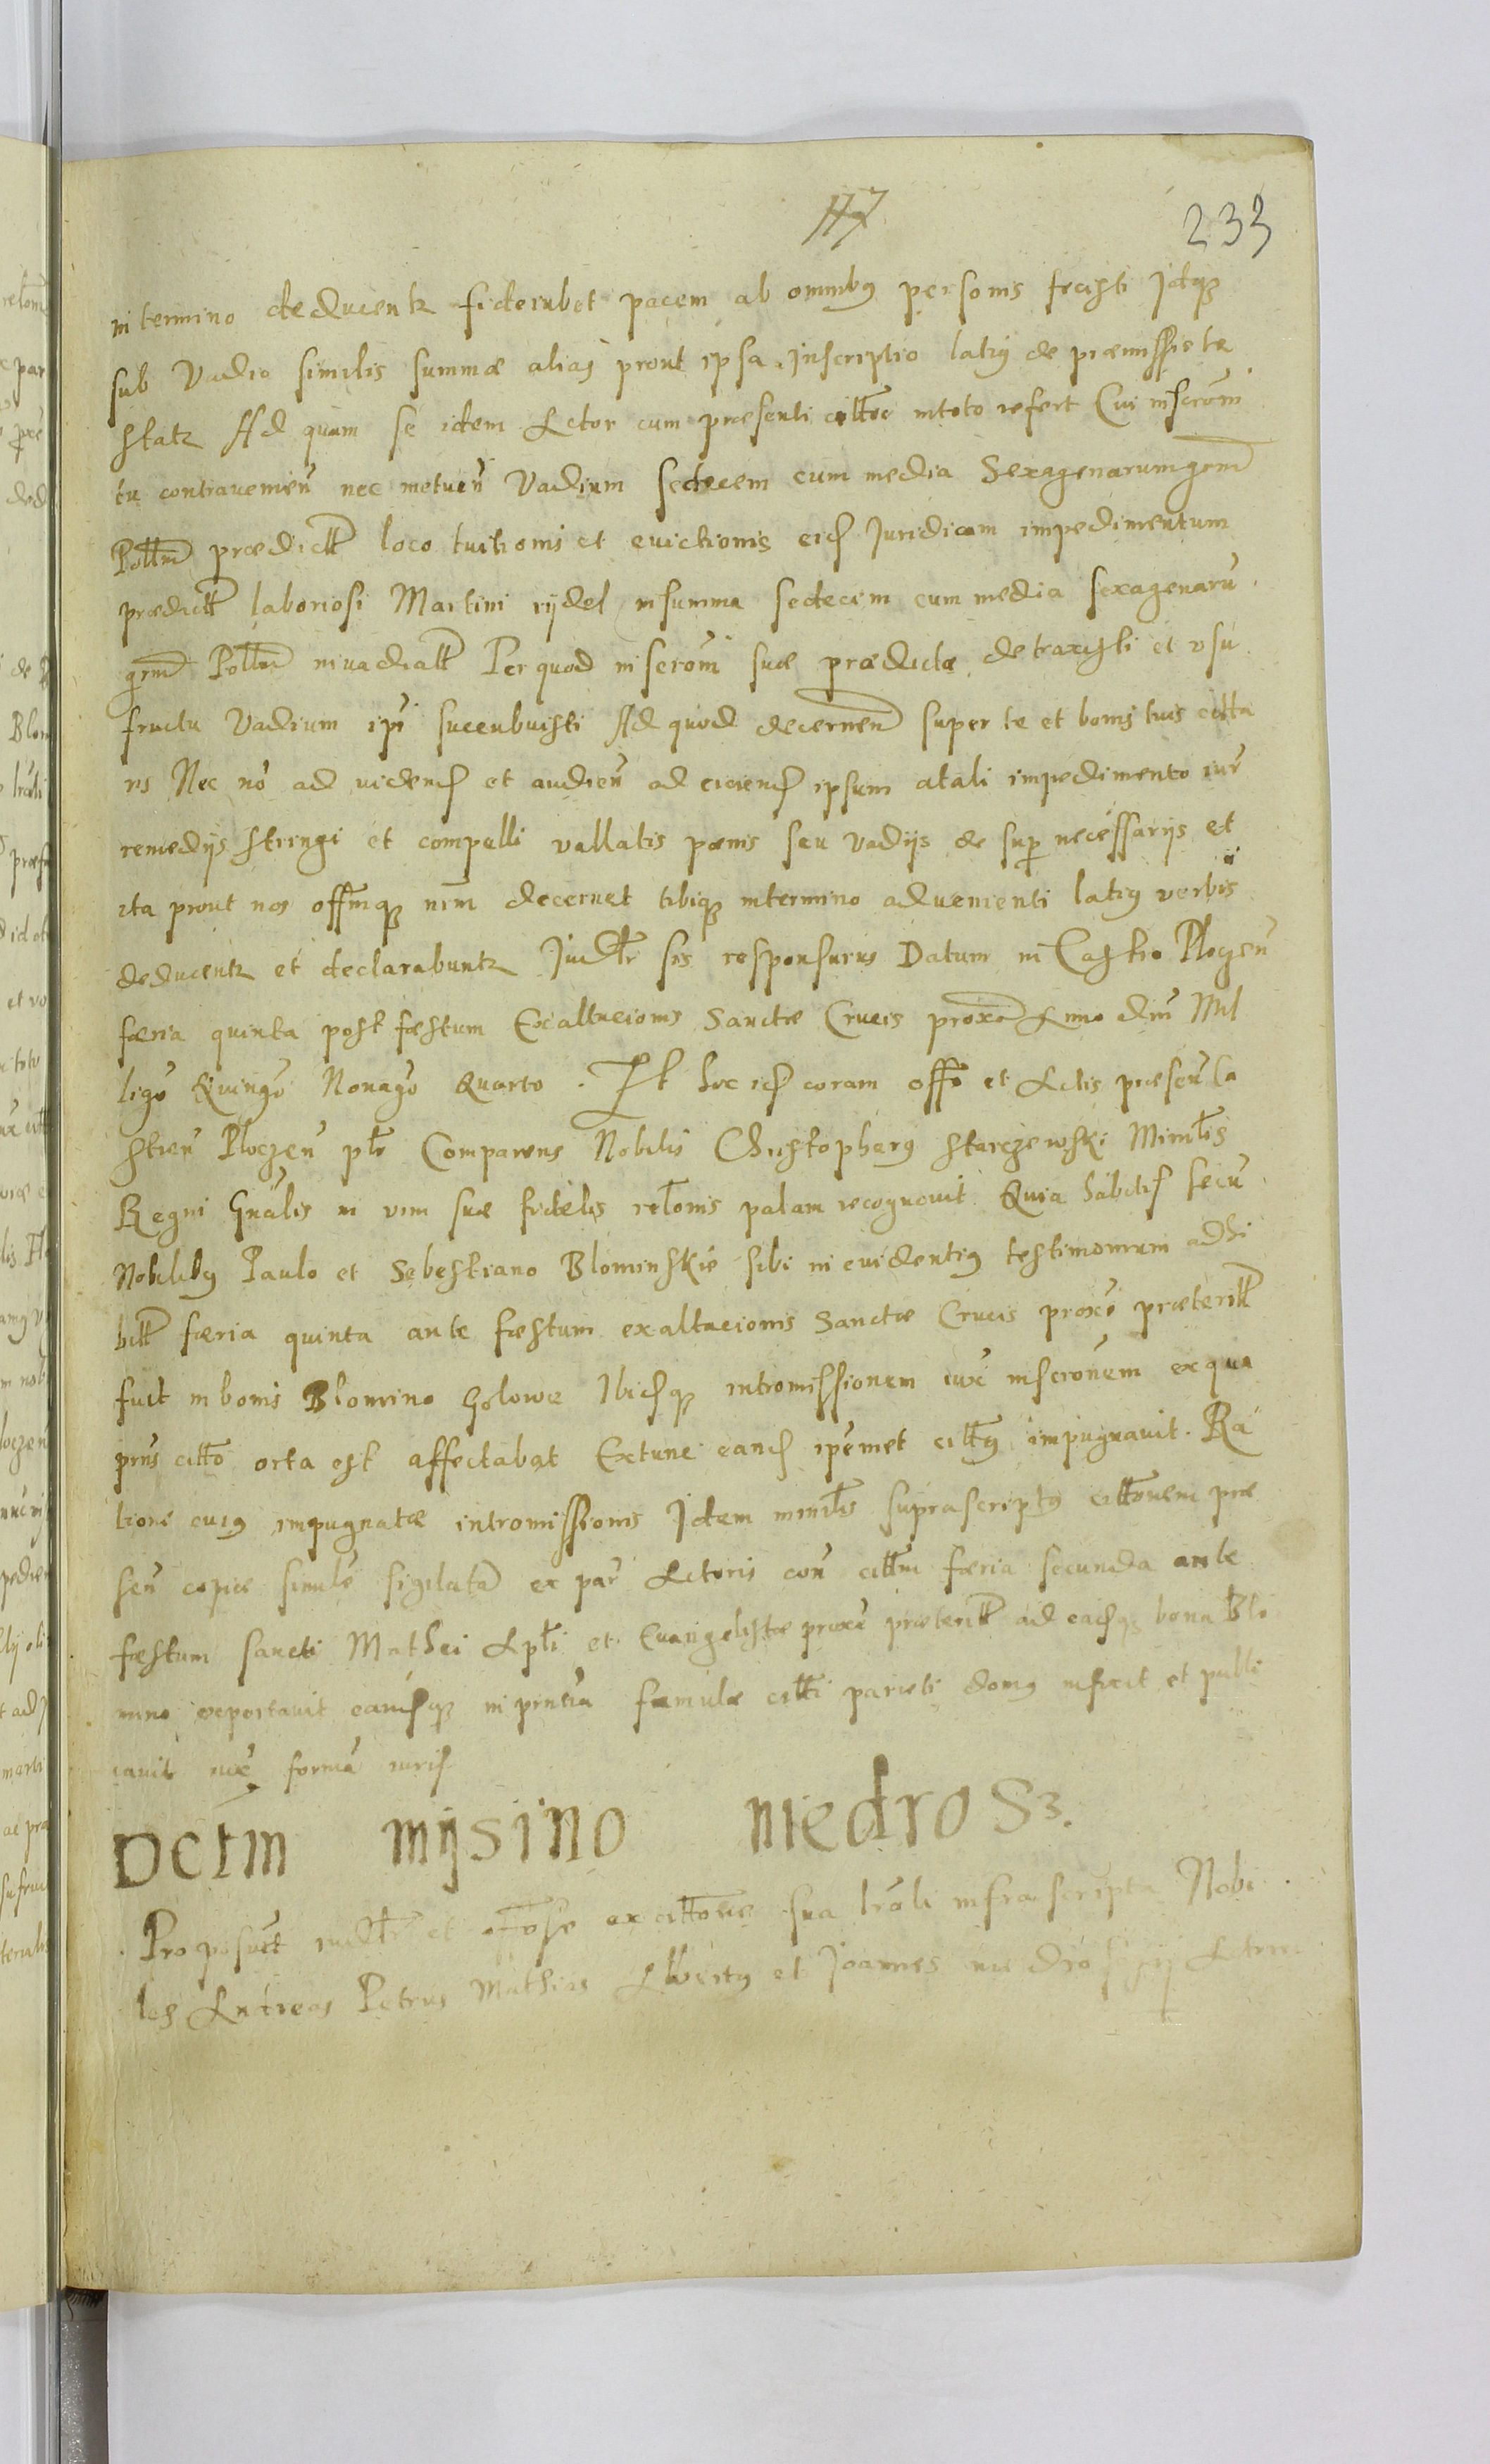 117
233
in termino deducentr fideiubet pacem ab omnibus personis fecisti Idqz
sub Vadio similis summæ alias prout ipsa Inscriptio latius de præmissis te
statr Ad quam se idem Actor cum præsenti cittõe in toto refert Cui inscrõni
tu contraveniеñ nec metueñ Vadium sedecem cum media Sexagenarum grom
Polłm prædictt loco tuitionis et evictionis eid Iuridicam impedimentum
prædictt laboriosi Martini rijdel in summa sedecem cum media sexagenarũ
grm Polłm invadiatt Per quod inscrõni suæ prædictæ detraxisti et usu
fructu Vadium ipi succubuisti Ad quod decernen super te et bonis tuis citta
ris Nec nõ ad videnđ et audieñ ad eiciend ipsum a tali impedimento iur
remedijs stringi et compelli vallatis pœnis seu Vadijs de sup necessarijs et
ita prout nos offmqz nrm decernet tibiqz in termino advenienti latius verbis
deducentr et declarabuntr Iudłr sis responsurus Datum in Castro Ploczeñ
færia quinta post fæstum Exaltacionis Sanctæ Crucis proxe Anno dni Mil
ligõ Quingõ Nonagõ Quarto. It hic id coram offo et Actis præseñ Ca
streñ Ploczeñ płr Comparens Nobilis Christopherus Starczewski Minist̃lis
Regni Gnãlis in vim suæ fidelis relõnis palam recognovit Quia habitis secũ
Nobilibus Paulo et Sebestiano Blominskie sibi in evidentius testimonium adhi
bitt færia quinta ante fæstum exaltacionis Sanctæ Crucis proxe præteritt
fuit in bonis Blomino Golowe Ibidqz intromissionem iuxẽ inscrõnem ex qua
pñs citto orta est affectabat Extunc eand ipẽmet cittus impugnavit. Ra
tione cuius impugnatæ intromissionis Idem ministłis suprascriptus cittõnem præ
señ copiæ simile sigilatã ex par Actoris coñ cittm færia secunda ante
fæstum sancti Mathei Apłi et Evangelistæ proxe præteritt ad eadqz bona Blo
mino reportavit eandqz in pñtia famulæ citti parieti domus infixit et publi
cavit iuxẽ formã iuris
DCIM mysino niedros3.
Proposuertt iudłr et ex cittõne sua lrãli infrascripta Nobi
les Andreas Petrus Mathias Albertus et Joannes niedroszij Actores